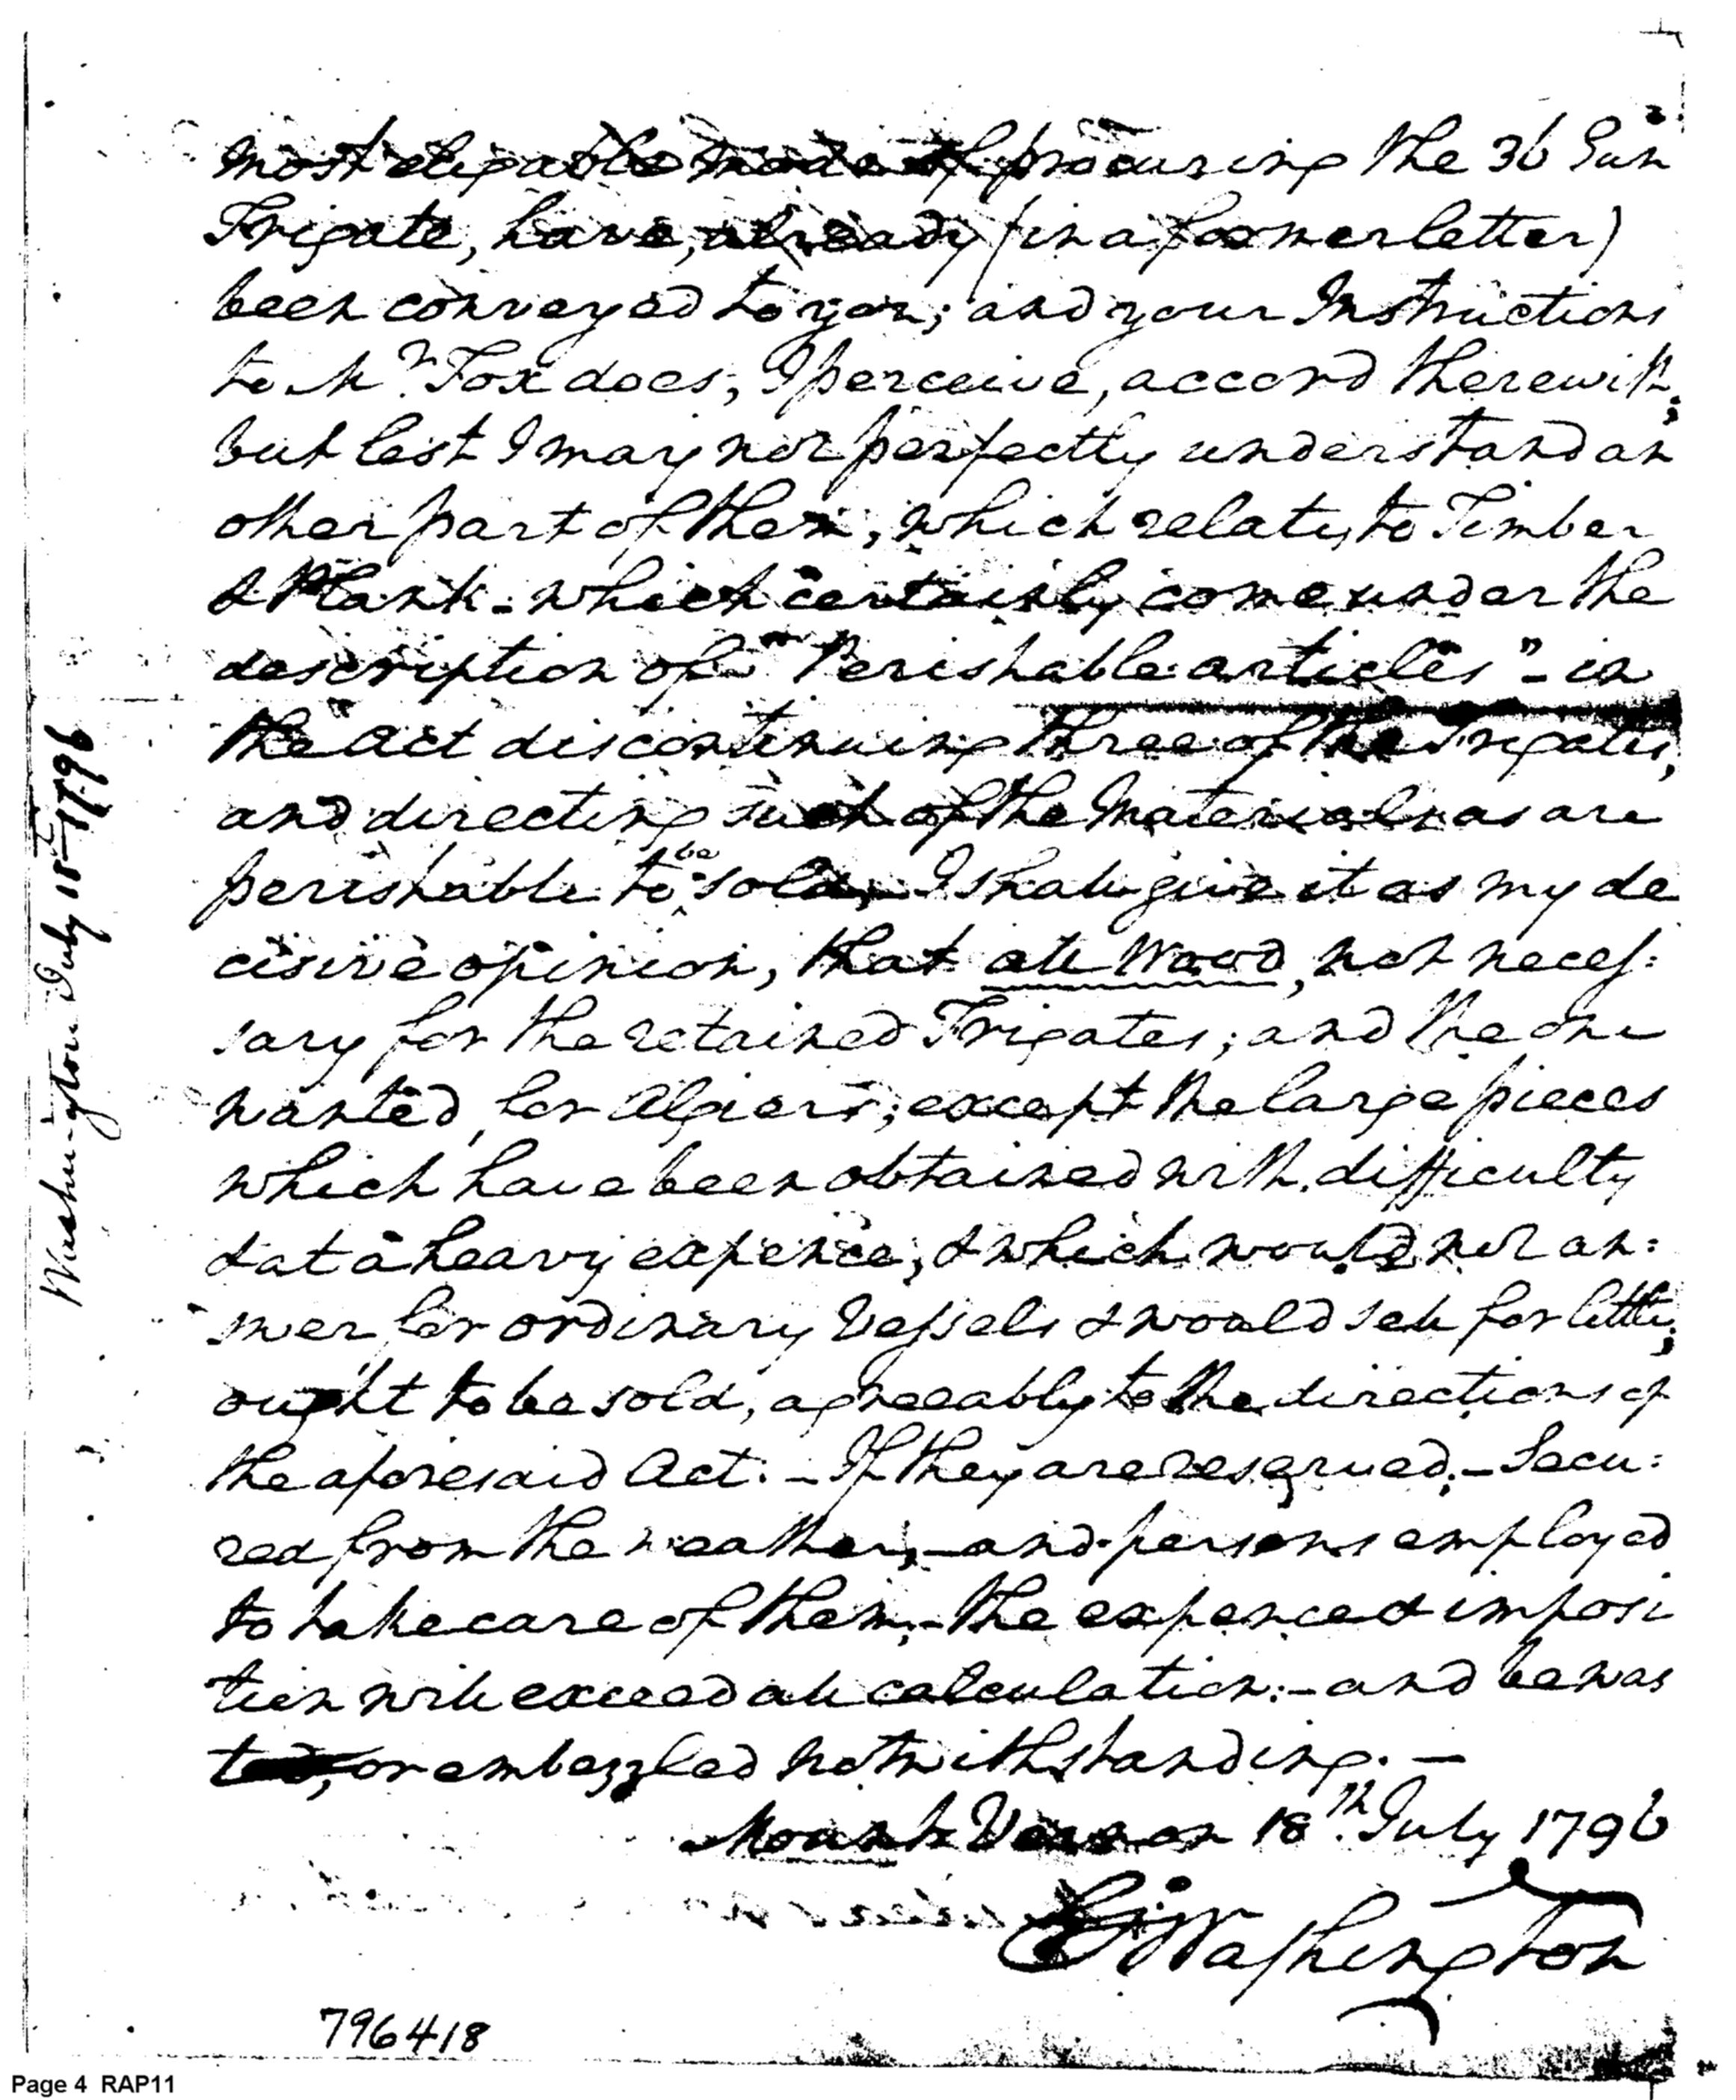 most eligable mode of procuring the 36 Gun
Frigate, have, already (in a former letter)
been conveyed to you; and your Instructions
to Mr. Fox does, I perceive, accord therewith;
but lest I may not perfectly understand an
other part of them, which relates to Timber
& Plank - which certainly come under the
description of "Perishable articles" - in
the Act discontinuing three of the Frigates,
and directing such of the Materials as are
perishable to be sold, I shall give it as my de
cisive opinion, that all Wood, not neces=
sary for the retained Frigates; and the one
wanted for Algiers; except the large pieces
which have been obtained with difficulty
& at a heavy expence, & which would not an=
swer for ordinary Vessels & would sell for little;
ought to be sold, agreeably to the directions of
the aforesaid Act. - If they are reserved, - Secu=
red from the weather, - and persons employed
to take care of them, - the expence & imposi
tion will exceed all calculation: - and be was
ted, or embezzled notwithstanding. -
Mount Vernon 18th. July 1796
G: Washington
Washington July 18th 1796
796418
Page 4 RAP11